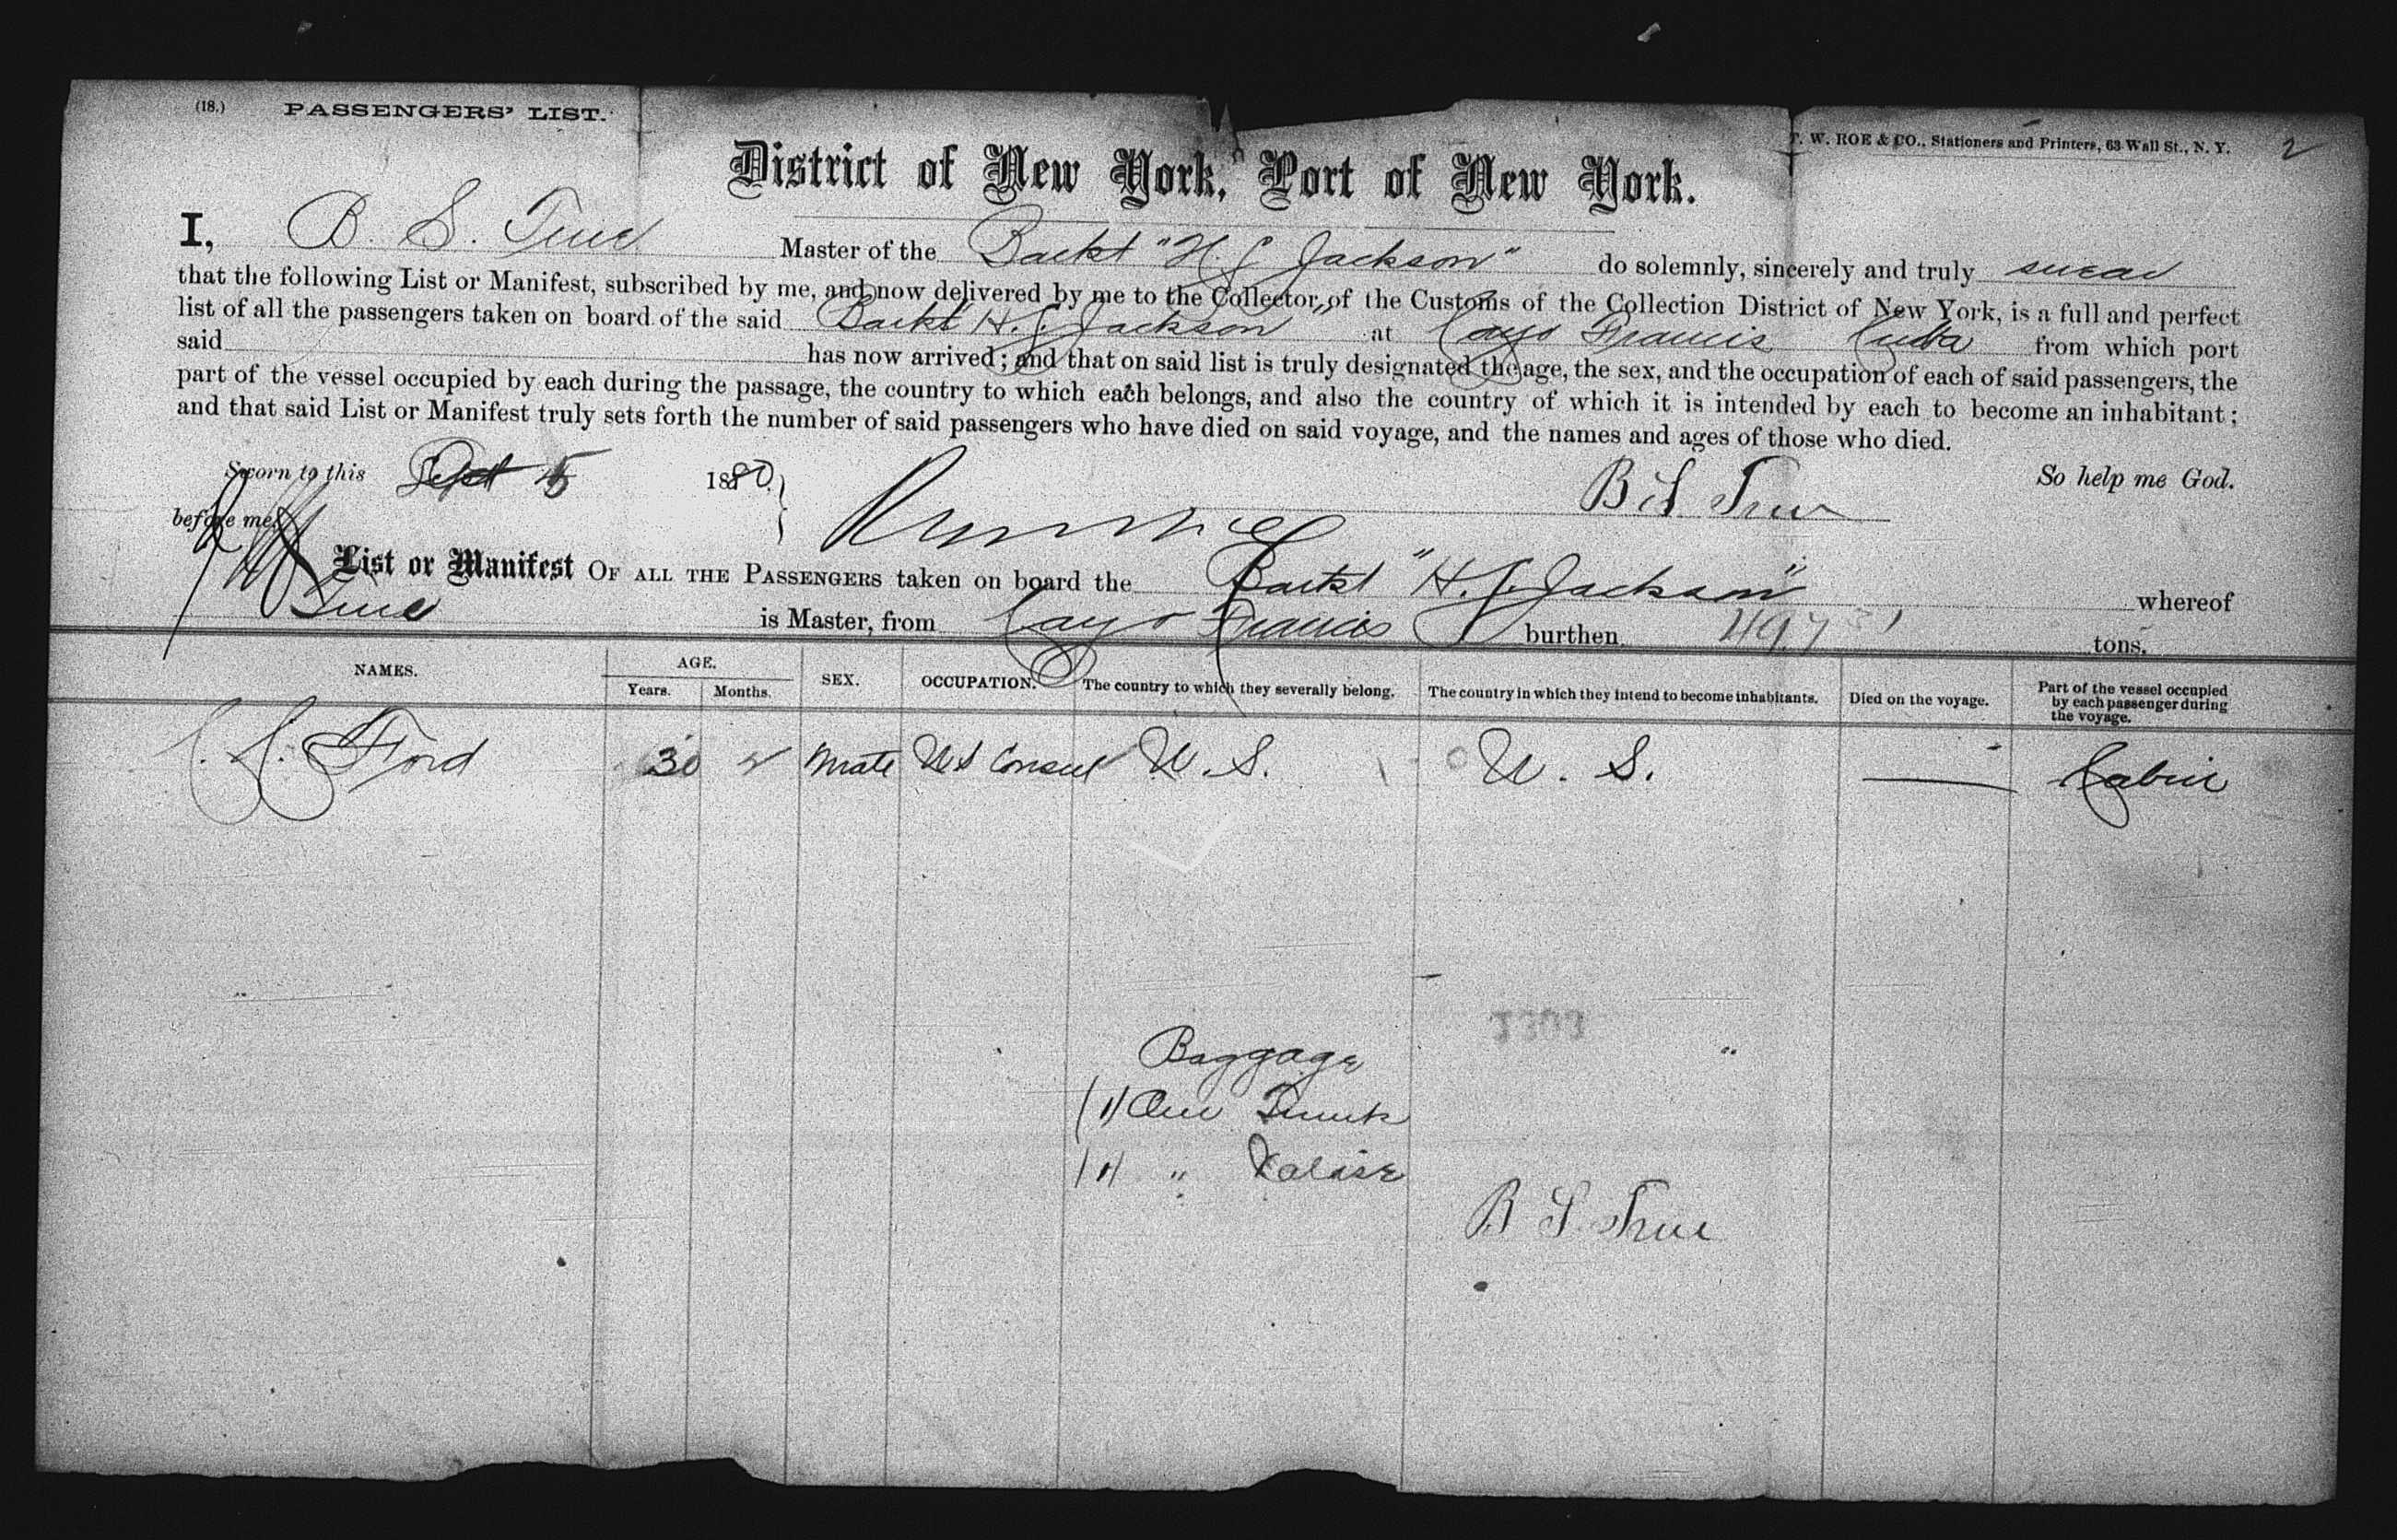 (18.) PASSENGERS' LIST.
T. W. ROE & CO., Stationers and Printers, 63 Wall St., N. Y. 2
District of New York, Port of New York.
I, B. S. True Master of the Barkt "H. J. Jackson" do solemnly, sincerely and truly swear
that the following List or Manifest, subscribed by me, and now delivered by me to the Collector of the Customs of the Collection District of New York, is a full and perfect
list of all the passengers taken on board of the said Barkt "H. J. Jackson" at Cayo Francis Cuba from which port
said has now arrived; and that on said list is truly designated the age, the sex, and the occupation of each of said passengers, the
part of the vessel occupied by each during the passage, the country to which each belongs, and also the country of which it is intended by each to become an inhabitant;
and that said List or Manifest truly sets forth the number of said passengers who have died on said voyage, and the names and ages of those who died.
Sworn to this Sept 15 1880. So help me God.
before me B S True
List or Manifest OF ALL THE PASSENGERS taken on board the Barkt "H. J. Jackson" whereof
True is Master, from Cayo Francis burthen 497 tons.
NAMES. AGE. Years. Months. SEX. OCCUPATION. The country to which they severally belong. The country in which they intend to become inhabitants. Died on the voyage. Part of the vessel occupied by each passenger during the voyage.
Ford 30 Male US Consul U. S. U. S. — Cabin
Baggage
(1) One Trunk
(1) " Valise
B S True